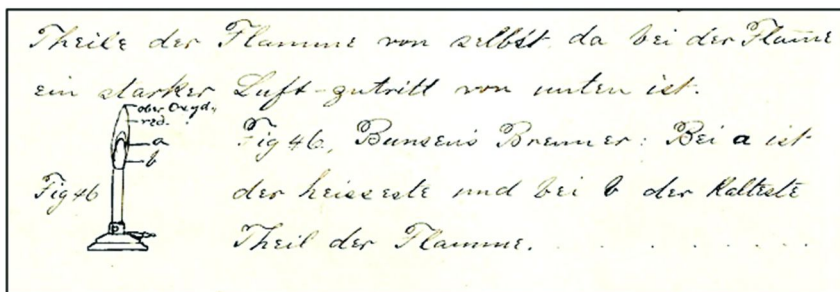 Theile der Flamme von selbst da bei der Flam̅e
ein starker Luft-zutritt von unten ist.
ober Oxyd.
red.
a
b
Fig 46
Fig 46, Bunsen's Brenner: Bei a ist
der heisseste und bei b der Kälteste
Theil der Flamme. . . . . . . . .